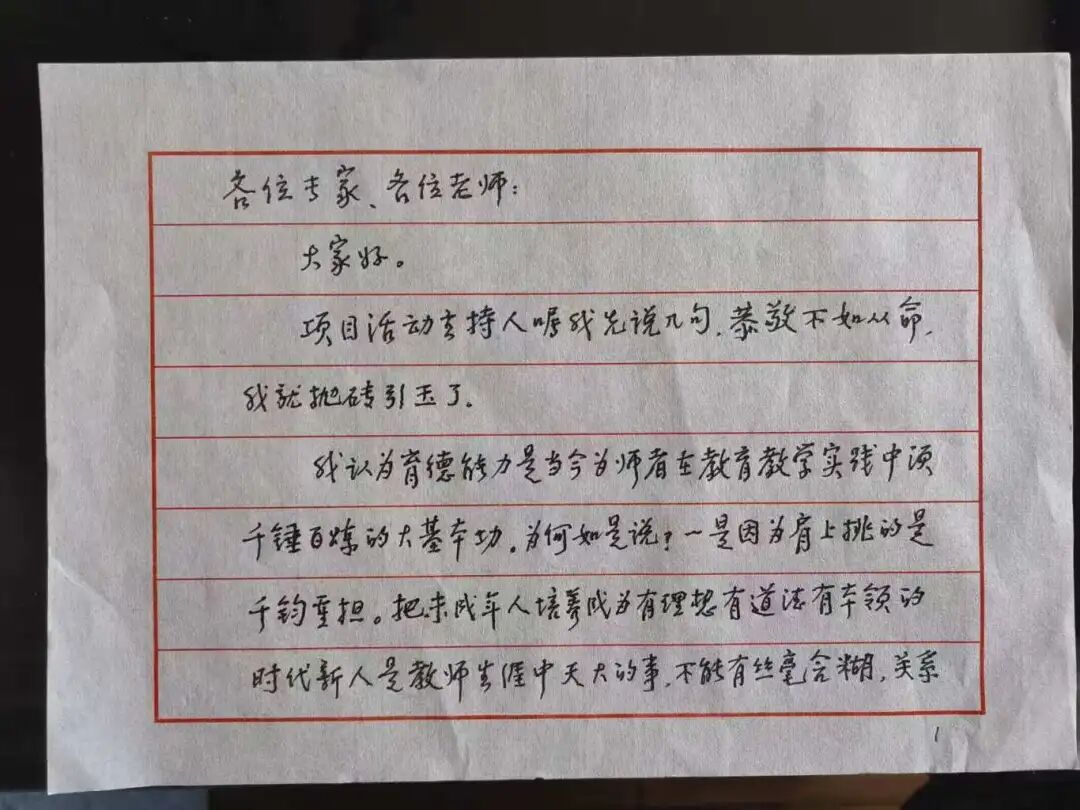 各位专家、各位老师：
大家好。
项目活动主持人嘱我先说几句，恭敬不如从命，
我就抛砖引玉了。
我认为育德能力是当今为师者在教育教学实践中须
千锤百炼的大基本功。为何如是说？一是因为肩上挑的是
千钧重担。把未成年人培养成为有理想有道法有本领的
时代新人是教师生涯中天大的事，不能有丝毫含糊，关系
1